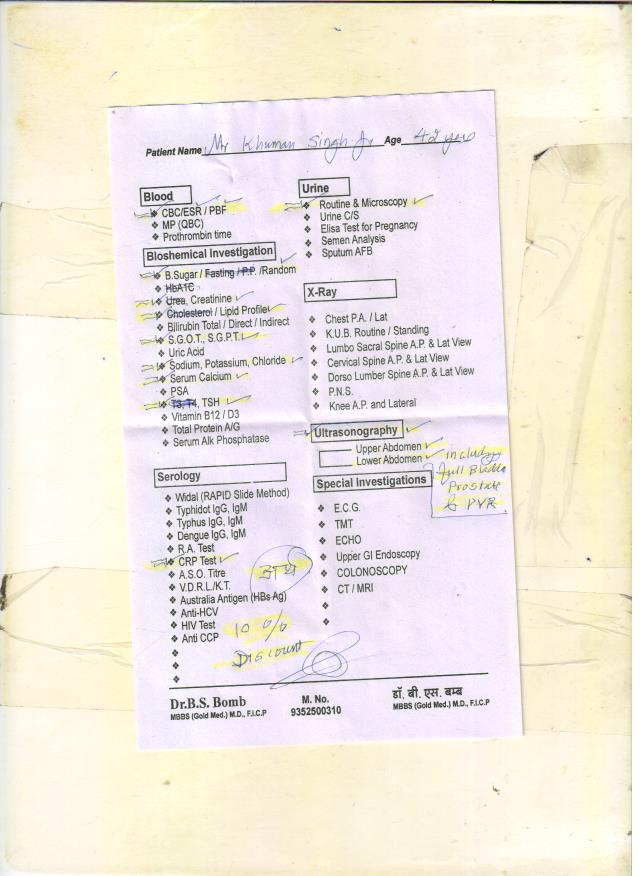 Patient Name Mr Khuman Singh Jr Age 42 yers
Blood
❖ CBC/ESR / PBF ✓
❖ MP (QBC)
❖ Prothrombin time
Bioshemical Investigation
❖ B.Sugar / Fasting / P.P. /Random
❖ HbA1C
❖ Urea, Creatinine ✓
❖ Cholesterol / Lipid Profile ✓
❖ Bilirubin Total / Direct / Indirect
❖ S.G.O.T., S.G.P.T. ✓
❖ Uric Acid
❖ Sodium, Potassium, Chloride ✓
❖ Serum Calcium ✓
❖ PSA
❖ T3, T4, TSH ✓
❖ Vitamin B12 / D3
❖ Total Protein A/G
❖ Serum Alk Phosphatase
Serology
❖ Widal (RAPID Slide Method)
❖ Typhidot IgG, IgM
❖ Typhus IgG, IgM
❖ Dengue IgG, IgM
❖ R.A. Test
❖ CRP Test ✓
❖ A.S.O. Titre
❖ V.D.R.L./K.T.
❖ Australia Antigen (HBs Ag)
❖ Anti-HCV
❖ HIV Test
❖ Anti CCP
10 %
Discount
Urine
❖ Routine & Microscopy ✓
❖ Urine C/S
❖ Elisa Test for Pregnancy
❖ Semen Analysis
❖ Sputum AFB
X-Ray
❖ Chest P.A. / Lat
❖ K.U.B. Routine / Standing
❖ Lumbo Sacral Spine A.P. & Lat View
❖ Cervical Spine A.P. & Lat View
❖ Dorso Lumber Spine A.P. & Lat View
❖ P.N.S.
❖ Knee A.P. and Lateral
Ultrasonography ✓
Upper Abdomen ✓
Lower Abdomen ✓
full Bladder
Prostate
& PVR
Special Investigations
❖ E.C.G.
❖ TMT
❖ ECHO
❖ Upper GI Endoscopy
❖ COLONOSCOPY
❖ CT / MRI
Dr.B.S. Bomb
MBBS (Gold Med.) M.D., F.I.C.P
M. No.
9352500310
डॉ. बी. एस. बम्ब
MBBS (Gold Med.) M.D., F.I.C.P